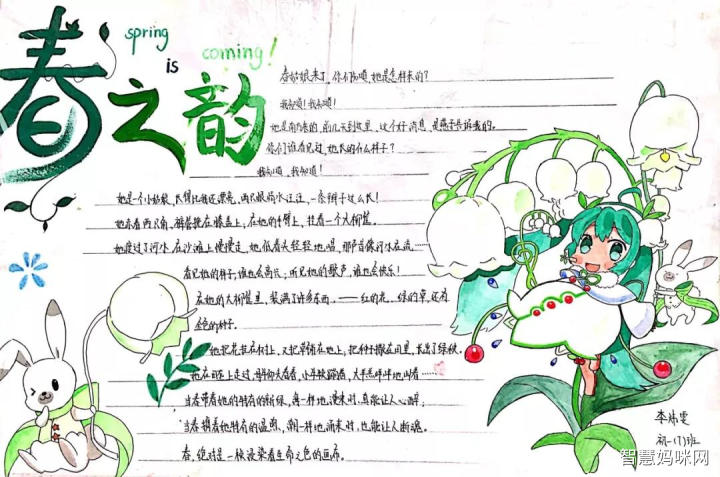 春之韵
spring
is
coming!
春姑娘来了，你们知道，她是怎样来的？
我知道！我知道！
她是南方来的，前几天到这里，这个好消息，是燕子告诉我的。
你们谁看见过，她长的什么样子？
我知道，我知道！
她是一个小姑娘，长得比我还漂亮，两只眼睛水汪汪，一条辫子这么长！
她赤着两只脚，裤管挽在膝盖上，在她的手臂上，挂着一个大柳篮。
她渡过了河水，在沙滩上慢慢走，她低着头轻轻地唱，那声音像河水在流……
看见她的样子，谁也会高兴，听见她的歌声，谁也会快乐！
在她的大柳篮里，装满了许多东西，——红的花，绿的草，还有
金色的种子。
她把花挂在树上，又把草铺在地上，把种子撒在田里，长出了绿秧。
她在田埂上走过，母牛仰头看着，小羊 蹦跳着，大羊咩咩地叫着……
当春带着她特有的新绿，海一样地漫来时，真能让人心醉；
当春携着她特有的温煦，潮一样涌来时，也能让人断魂。
春，绝对是一种浸染着生命之色的画布。
李
初一(7)班
智慧妈咪网